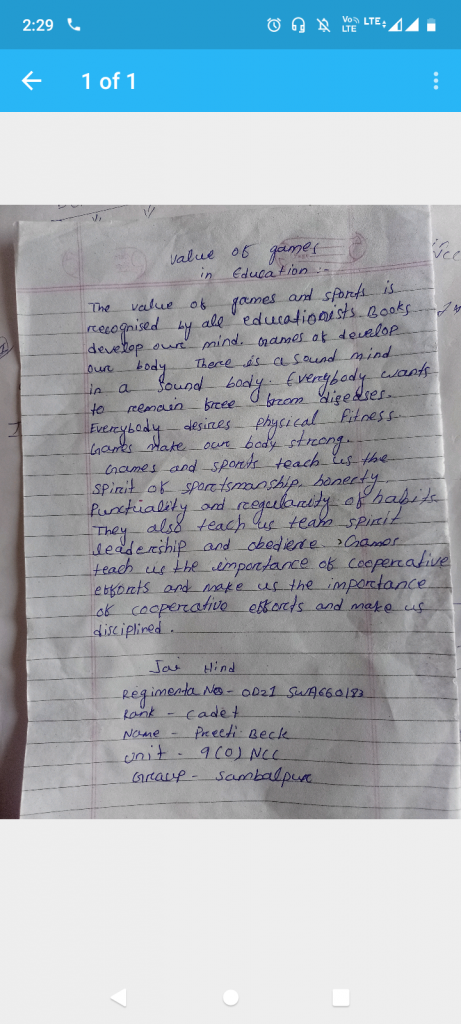 2:29
Vo)) LTE
LTE
1 of 1
value of games
in Education :-
The value of games and sports is
recognised by all educationists. Books
develop our mind. Games of develop
our body. There is a sound mind
in a sound body. Everybody wants
to remain free from diseases.
Everybody desires physical Fitness
Games make our body strong.
Games and sports teach us the
spirit of sportsmanship, honecty
Punctuality and regularity of habits
They also teach us team spirit
leadership and obedience, Games
teach us the importance of cooperative
efforts and make us the importance
of cooperative efforts and make us
disciplined.
Jai Hind
Regimenta No - OD21 SWA660183
Rank - Cadet
Name - Preeti Beck
unit - 9(O) NCC
Group - Sambalpur
NCC